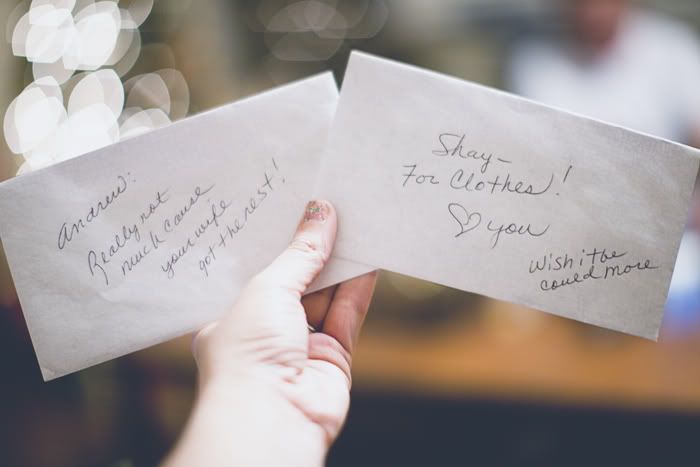 Andrew:
Really not
much cause
your wife
got the rest!
Shay-
For Clothes!
♡ you
Wish it be
could more